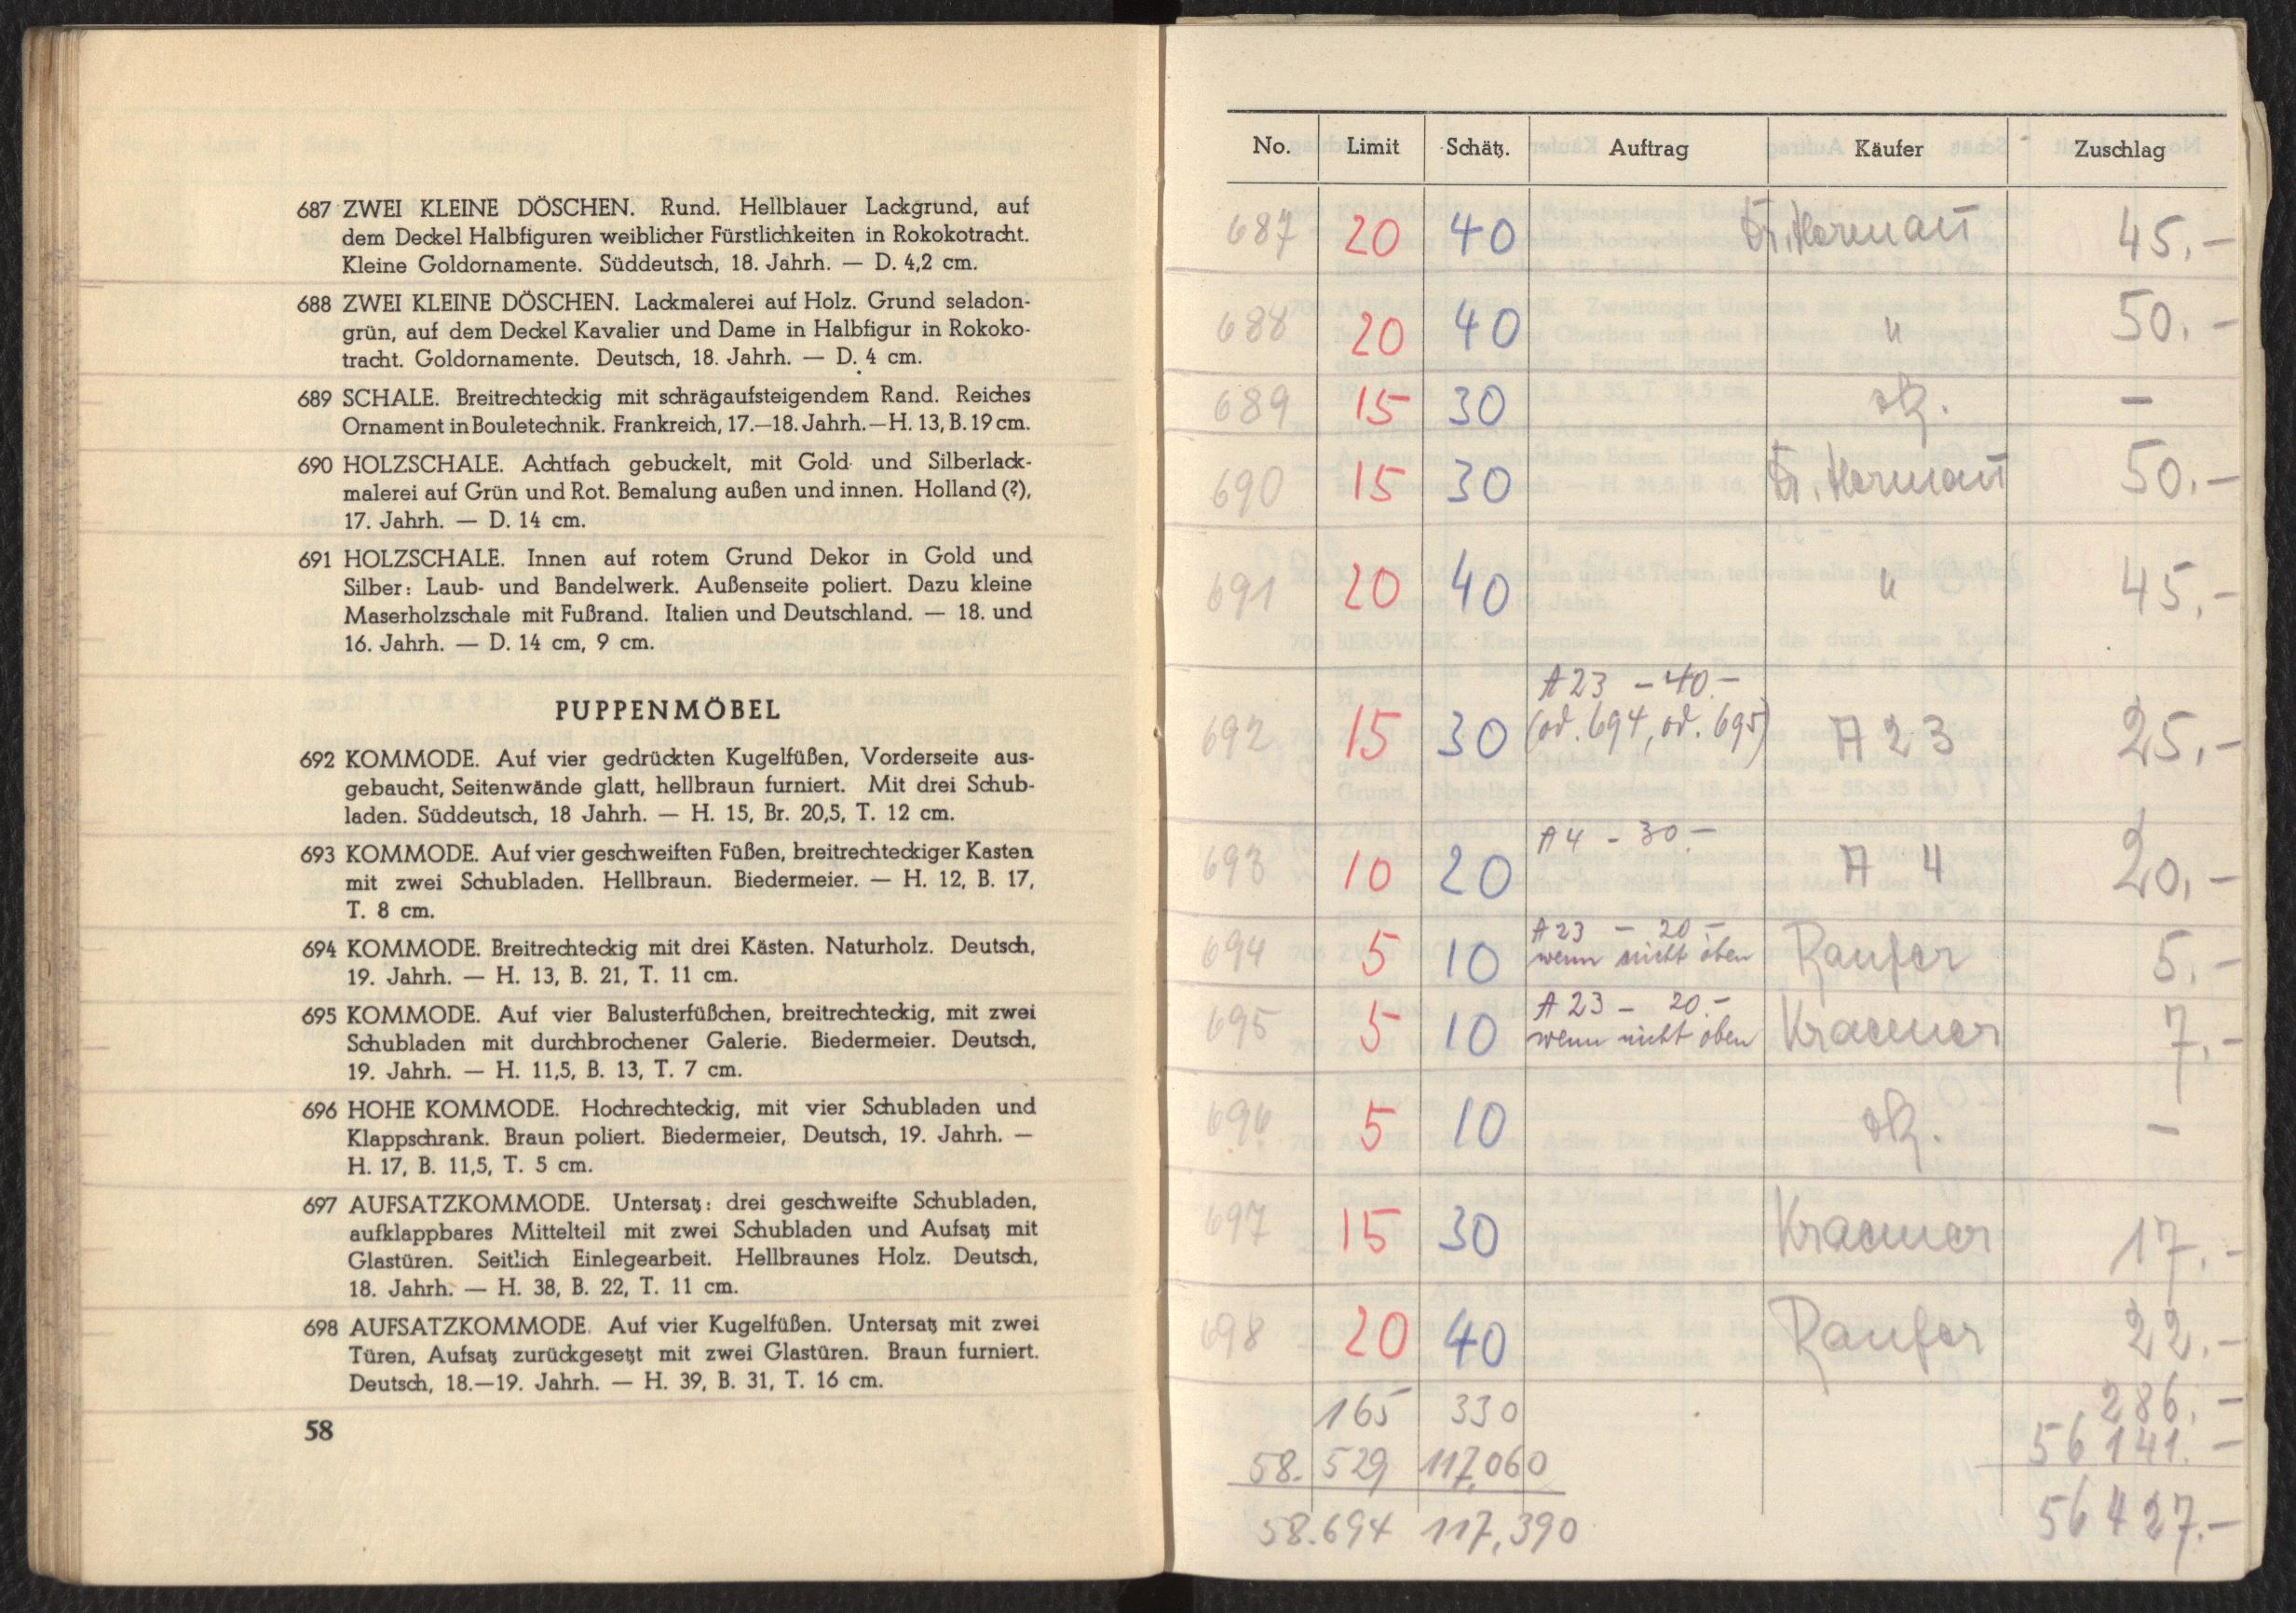 687 ZWEI KLEINE DÖSCHEN. Rund. Hellblauer Lackgrund, auf
dem Deckel Halbfiguren weiblicher Fürstlichkeiten in Rokokotracht.
Kleine Goldornamente. Süddeutsch, 18. Jahrh. — D. 4,2 cm.
688 ZWEI KLEINE DÖSCHEN. Lackmalerei auf Holz. Grund seladon-
grün, auf dem Deckel Kavalier und Dame in Halbfigur in Rokoko-
tracht. Goldornamente. Deutsch, 18. Jahrh. — D. 4 cm.
689 SCHALE. Breitrechteckig mit schrägaufsteigendem Rand. Reiches
Ornament in Bouletechnik. Frankreich, 17.—18. Jahrh. — H. 13, B. 19 cm.
690 HOLZSCHALE. Achtfach gebuckelt, mit Gold- und Silberlack-
malerei auf Grün und Rot. Bemalung außen und innen. Holland (?),
17. Jahrh. — D. 14 cm.
691 HOLZSCHALE. Innen auf rotem Grund Dekor in Gold und
Silber: Laub- und Bandelwerk. Außenseite poliert. Dazu kleine
Maserholzschale mit Fußrand. Italien und Deutschland. — 18. und
16. Jahrh. — D. 14 cm, 9 cm.
PUPPENMÖBEL
692 KOMMODE. Auf vier gedrückten Kugelfüßen, Vorderseite aus-
gebaucht, Seitenwände glatt, hellbraun furniert. Mit drei Schub-
laden. Süddeutsch, 18 Jahrh. — H. 15, Br. 20,5, T. 12 cm.
693 KOMMODE. Auf vier geschweiften Füßen, breitrechteckiger Kasten
mit zwei Schubladen. Hellbraun. Biedermeier. — H. 12, B. 17,
T. 8 cm.
694 KOMMODE. Breitrechteckig mit drei Kästen. Naturholz. Deutsch,
19. Jahrh. — H. 13, B. 21, T. 11 cm.
695 KOMMODE. Auf vier Balusterfüßchen, breitrechteckig, mit zwei
Schubladen mit durchbrochener Galerie. Biedermeier. Deutsch,
19. Jahrh. — H. 11,5, B. 13, T. 7 cm.
696 HOHE KOMMODE. Hochrechteckig, mit vier Schubladen und
Klappschrank. Braun poliert. Biedermeier, Deutsch, 19. Jahrh. —
H. 17, B. 11,5, T. 5 cm.
697 AUFSATZKOMMODE. Untersatz: drei geschweifte Schubladen,
aufklappbares Mittelteil mit zwei Schubladen und Aufsatz mit
Glastüren. Seitlich Einlegearbeit. Hellbraunes Holz. Deutsch,
18. Jahrh. — H. 38, B. 22, T. 11 cm.
698 AUFSATZKOMMODE. Auf vier Kugelfüßen. Untersatz mit zwei
Türen, Aufsatz zurückgesetzt mit zwei Glastüren. Braun furniert.
Deutsch, 18.—19. Jahrh. — H. 39, B. 31, T. 16 cm.
58
No. Limit Schätz. Auftrag Käufer Zuschlag
687 20 40 Dr. Hermañ 45.-
688 20 40 " 50.-
689 15 30 —
690 15 30 Dr. Hermañ 50.-
691 20 40 " 45.-
A 23 - 40.-
692 15 30 (od. 694, od. 695) A 23 25.-
A 4 - 30.-
693 10 20 A 4 20.-
A 23 - 20.-
694 5 10 wenn nicht oben Raufer 5.-
A 23 - 20.-
695 5 10 wenn nicht oben Kraemer 7.-
696 5 10 —
697 15 30 Kraemer 17.-
698 20 40 Raufer 22.-
165 330 286.-
58.529 117.060 56141.-
58.694 117,390 56427.-